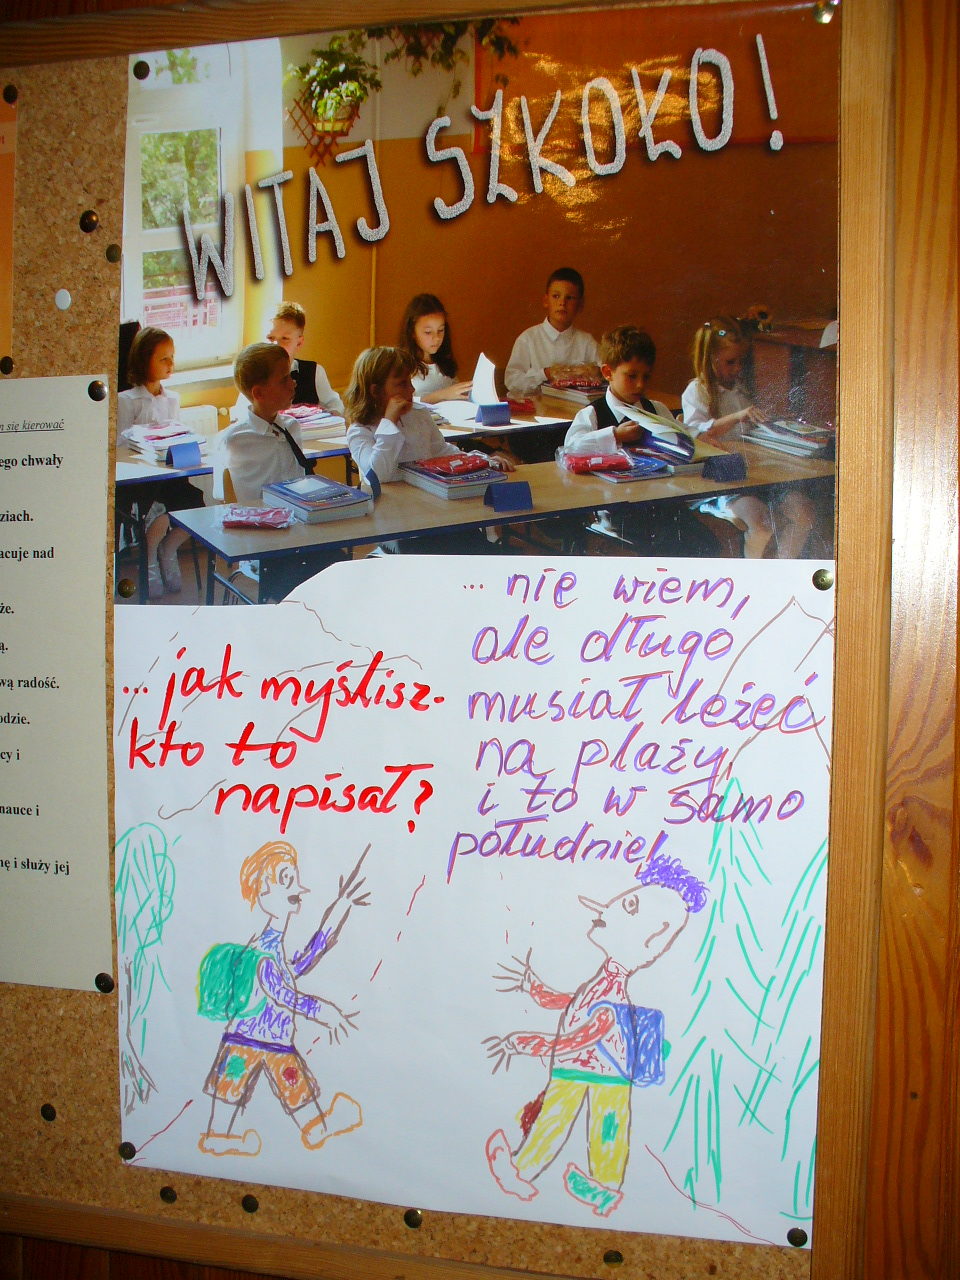 WITAJ SZKOŁO!
m się kierować
ego chwały
ziach.
acuje nad
że.
ą.
wą radość.
odzie.
cy i
nauce i
nę i służy jej
...jak myślisz-
kto to
napisał?
... nie wiem,
ale długo
musiał leżeć
na plaży,
i to w samo
południe!